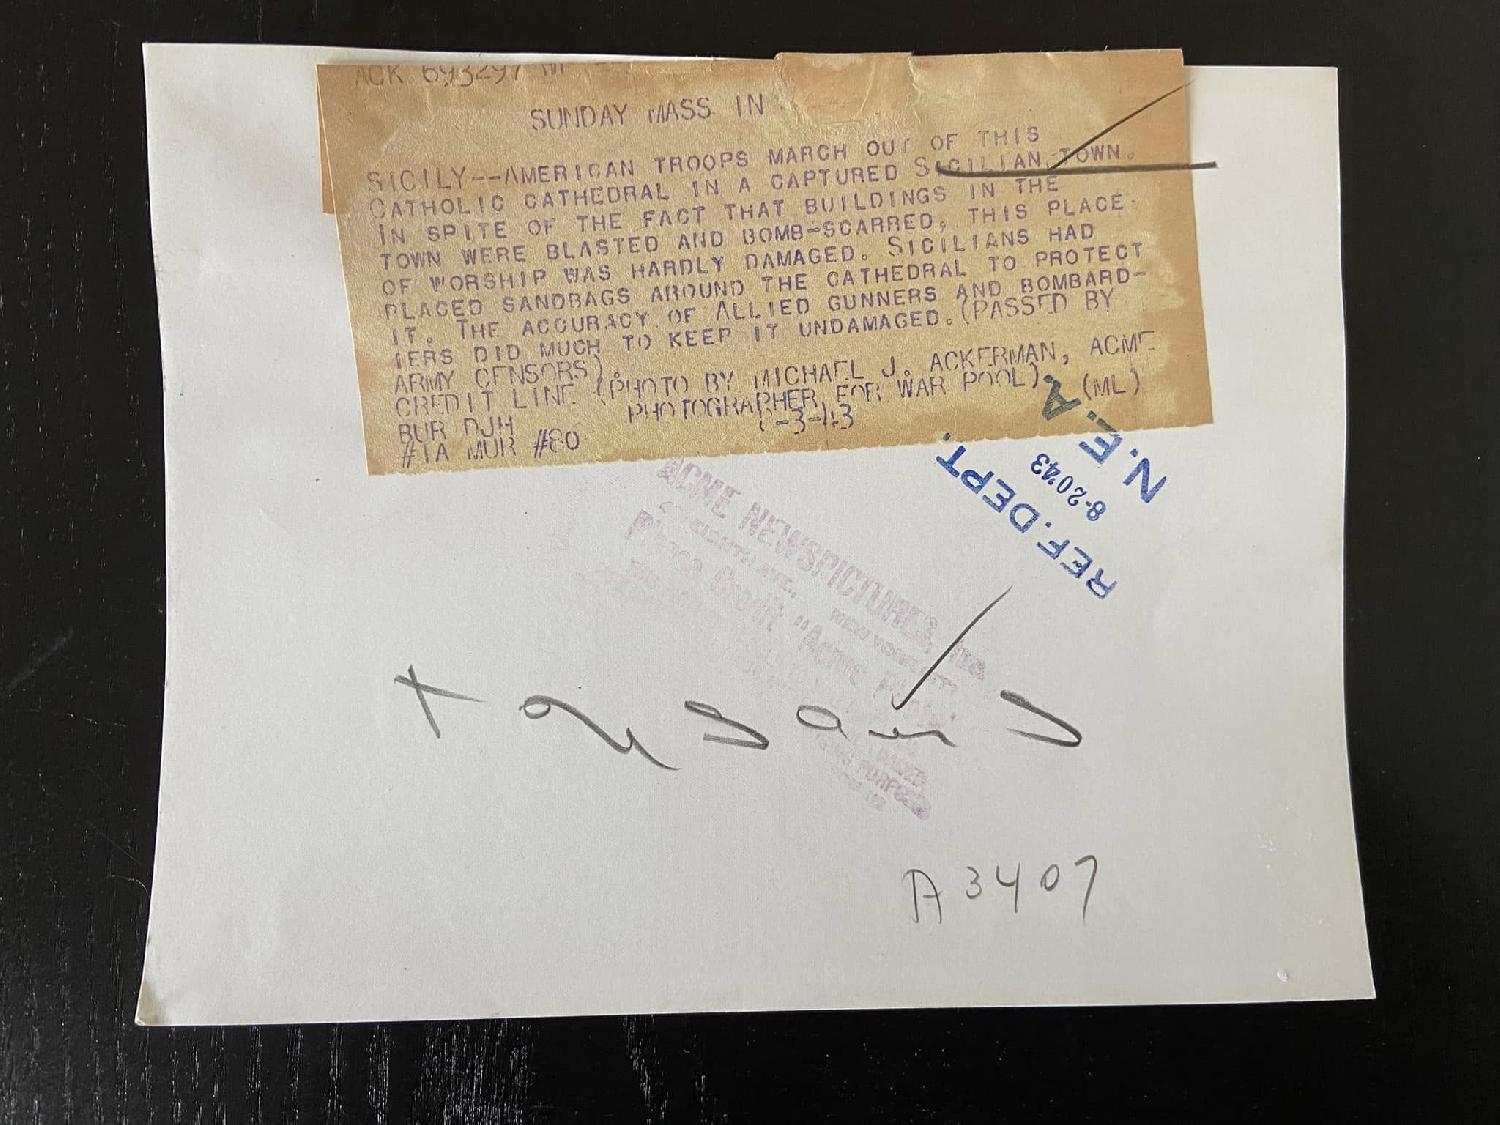 ACK 693297
SUNDAY MASS IN
SICILY--AMERICAN TROOPS MARCH OUT OF THIS
CATHOLIC CATHEDRAL IN A CAPTURED SICILIAN TOWN.
IN SPITE OF THE FACT THAT BUILDINGS IN THE
TOWN WERE BLASTED AND BOMB-SCARRED, THIS PLACE
OF WORSHIP WAS HARDLY DAMAGED. SICILIANS HAD
PLACED SANDBAGS AROUND THE CATHEDRAL TO PROTECT
IT. THE ACCURACY OF ALLIED GUNNERS AND BOMBARD-
IERS DID MUCH TO KEEP IT UNDAMAGED. (PASSED BY
ARMY CENSORS).
CREDIT LINE (PHOTO BY MICHAEL J. ACKERMAN, ACME
PHOTOGRAPHER, FOR WAR POOL). (ML)
BUR DJH
#1A MUR #80
N.E.A.
8-2043
REF. DEPT.
ACME NEWSPICTURES, INC.
Please Credit "Acme
A3407